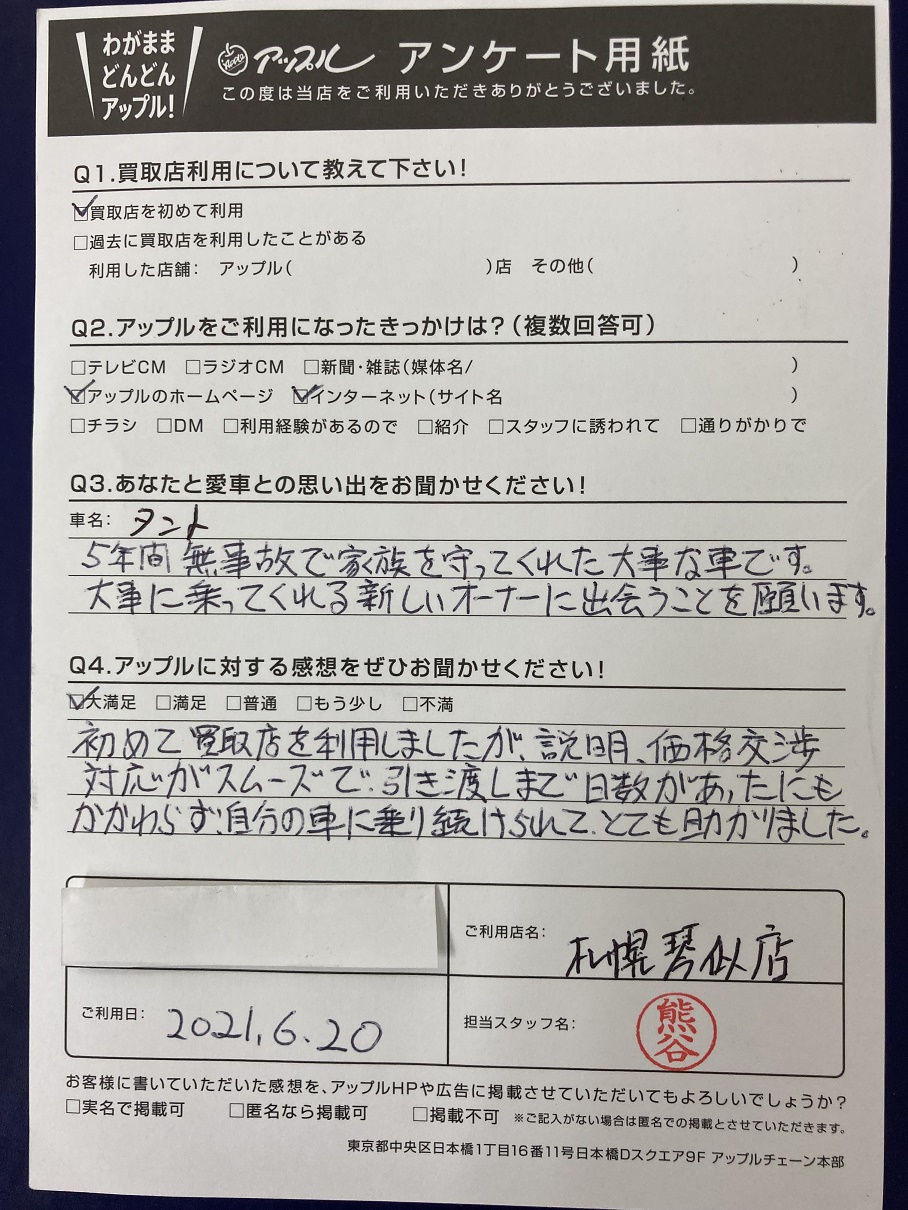 わがまま
どんどん
アップル!
Apple アップル アンケート用紙
この度は当店をご利用いただきありがとうございました。
Q1.買取店利用について教えて下さい!
☑買取店を初めて利用
□過去に買取店を利用したことがある
利用した店舗: アップル( )店 その他( )
Q2.アップルをご利用になったきっかけは?(複数回答可)
□テレビCM □ラジオCM □新聞・雑誌(媒体名/ )
☑アップルのホームページ ☑インターネット(サイト名 )
□チラシ □DM □利用経験があるので □紹介 □スタッフに誘われて □通りがかりで
Q3.あなたと愛車との思い出をお聞かせください!
車名: タント
5年間 無事故で家族を守ってくれた大事な車です。
大事に乗ってくれる新しいオーナーに出会うことを願います。
Q4.アップルに対する感想をぜひお聞かせください!
☑大満足 □満足 □普通 □もう少し □不満
初めて買取店を利用しましたが、説明、価格交渉
対応がスムーズで、引き渡しまで日数があったにも
かかわらず、自分の車に乗り続けられて、とても助かりました。
ご利用店名: 札幌琴似店
ご利用日: 2021.6.20
担当スタッフ名: 熊谷
お客様に書いていただいた感想を、アップルHPや広告に掲載させていただいてもよろしいでしょうか?
□実名で掲載可 □匿名なら掲載可 □掲載不可 ※ご記入がない場合は匿名での掲載とさせていただきます。
東京都中央区日本橋1丁目16番11号日本橋Dスクエア9F アップルチェーン本部